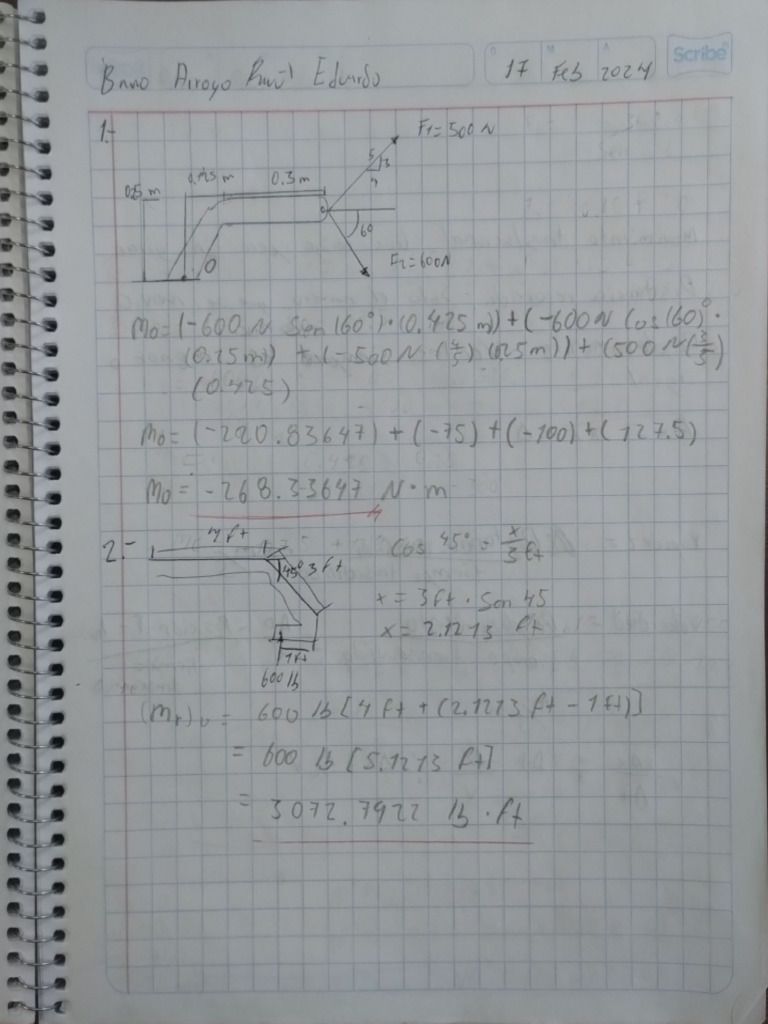 17 Feb 2024 Scribe
Arroyo Eduardo
1.-
F1=500 N
5
3
4
0.425 m 0.3 m
0.25 m
60
O
F2=600N
Mo= (-600 N Sen (60°)·(0.425 m)) + (-600 N Cos (60)°·
(0.25m)) + (-500N (4/5) (0.25m)) + (500 N (3/5)
(0.425)
Mo= (-220.83647) + (-75) + (-100) + (127.5)
Mo= -268.33647 N·m
2.-
4 ft
45° 3 ft
1 ft
600 lb
Cos 45° = x/3ft
x = 3ft · Sen 45
x = 2.1213 ft
(Mr)o = 600 lb [4 ft + (2.1213 ft - 1 ft)]
= 600 lb [5.1213 ft]
= 3072.7922 lb · ft